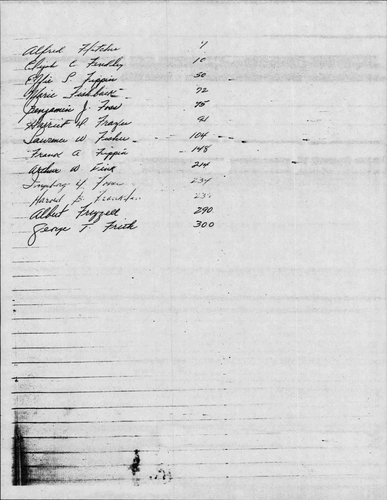 Alfred 7
Clyde C. Findley 10
Effie S. Fippin 50
Marie Fishback 72
Benjamin J. Foss 75
Harriet A Frazier 91
Lawrence W. Fisher 104
Frank A. Fippin 148
Arthur W Fink 214
Ingeborg 234
Harold B.
Albert Frizzell 290
George T. Frith 300